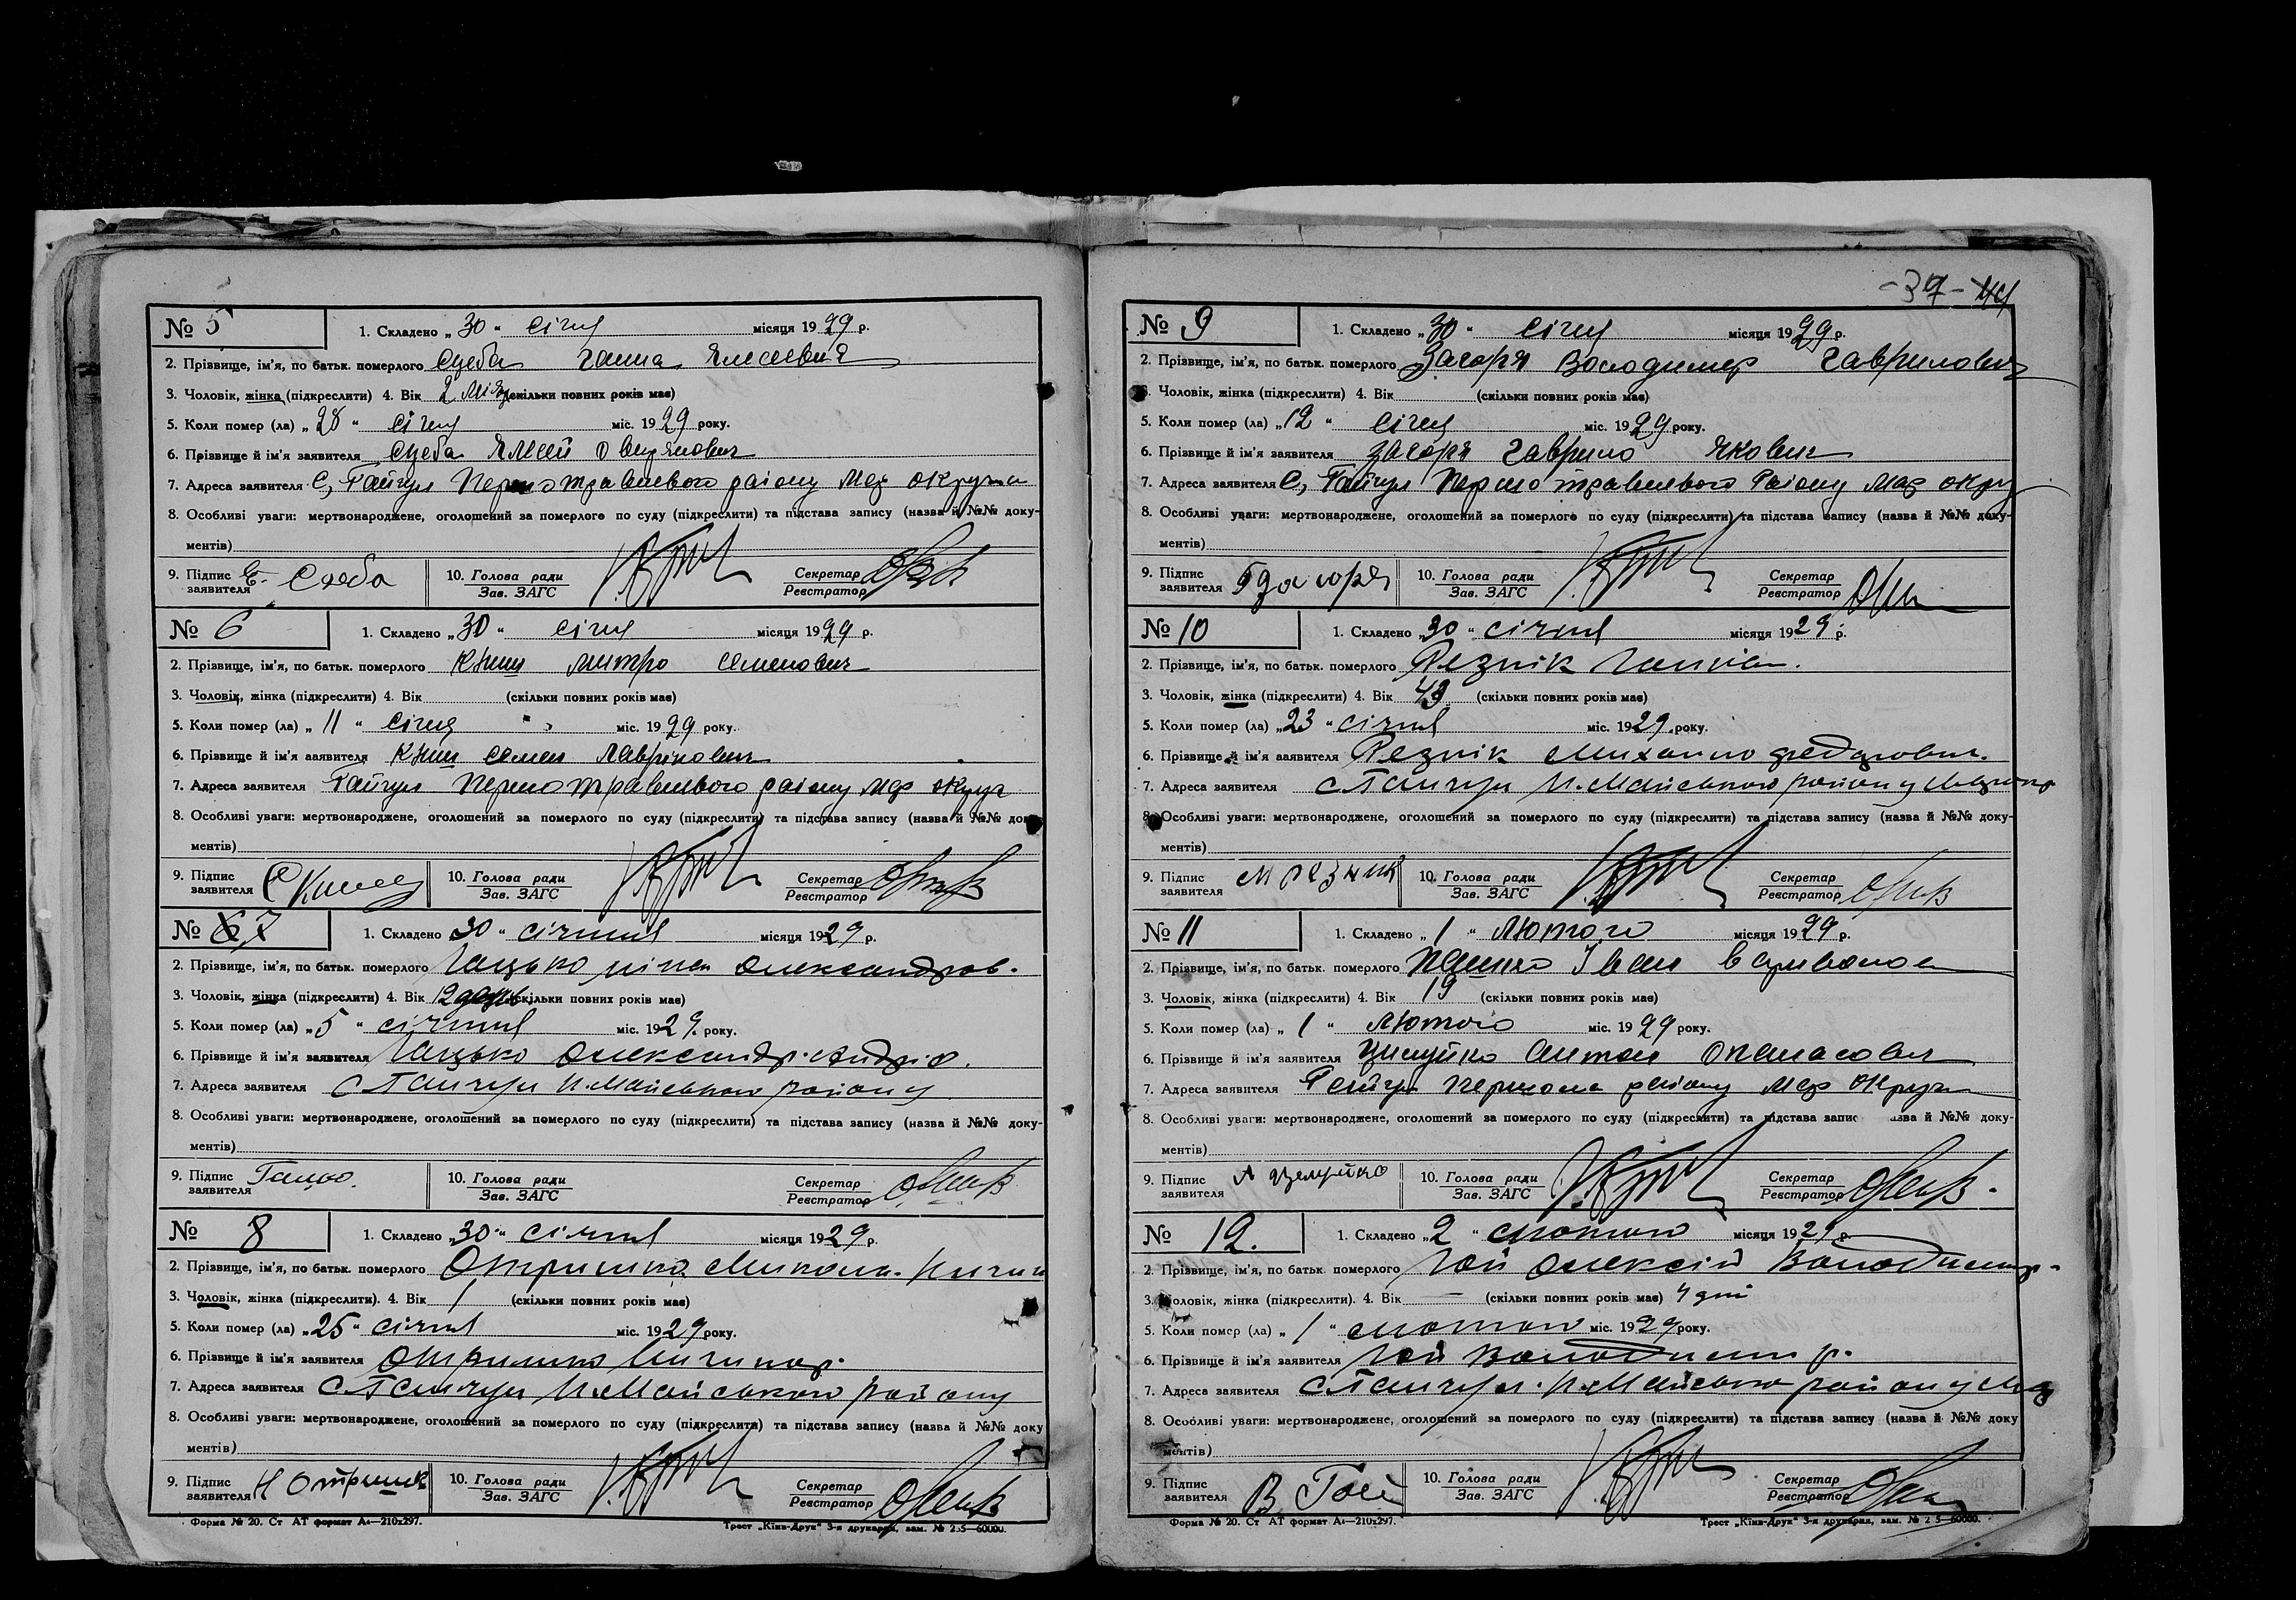 № 5
1. Складено „30“ січня місяця 1929 р.
2. Прізвище, ім'я, по батьк. померлого Ганна
3. Чоловік, жінка (підкреслити) 4. Вік 2 (скільки повних років має)
5. Коли помер (ла) „28“ січня міс. 1929 року.
6. Прізвище й ім'я заявителя
7. Адреса заявителя С, Гайчул Першотравневого району Мар округи
8. Особливі уваги: мертвонароджене, оголошений за померлого по суду (підкреслити) та підстава запису (назва й №№ доку-
ментів)
9. Підпис заявителя
10. Голова ради
Зав. ЗАГС
Секретар
Реєстратор
№ 6
1. Складено „30“ січня місяця 1929 р.
2. Прізвище, ім'я, по батьк. померлого Книш Митро Семенович
3. Чоловік, жінка (підкреслити) 4. Вік (скільки повних років має)
5. Коли помер (ла) „11“ січня міс. 1929 року.
6. Прізвище й ім'я заявителя Книш Семен Лаврінович
7. Адреса заявителя Гайчул Першотравневого району Мар округи
8. Особливі уваги: мертвонароджене, оголошений за померлого по суду (підкреслити) та підстава запису (назва й №№ доку-
ментів)
9. Підпис заявителя С Книш
10. Голова ради
Зав. ЗАГС
Секретар
Реєстратор
№ 7
1. Складено „30“ січня місяця 1929 р.
2. Прізвище, ім'я, по батьк. померлого Гацько Ніна Олександров.
3. Чоловік, жінка (підкреслити) 4. Вік 12 (скільки повних років має)
5. Коли помер (ла) „5“ січня міс. 1929 року.
6. Прізвище й ім'я заявителя Гацько Олександр
7. Адреса заявителя с. Гайчул П.Майського району
8. Особливі уваги: мертвонароджене, оголошений за померлого по суду (підкреслити) та підстава запису (назва й №№ доку-
ментів)
9. Підпис заявителя
10. Голова ради
Зав. ЗАГС
Секретар
Реєстратор
№ 8
1. Складено „30“ січня місяця 1929 р.
2. Прізвище, ім'я, по батьк. померлого Отришко Микола
3. Чоловік, жінка (підкреслити). 4. Вік 1 (скільки повних років має)
5. Коли помер (ла) „25“ січня міс. 1929 року.
6. Прізвище й ім'я заявителя Отришко
7. Адреса заявителя с. Гайчул П.Майського району
8. Особливі уваги: мертвонароджене, оголошений за померлого по суду (підкреслити) та підстава запису (назва й №№ доку
ментів)
9. Підпис заявителя Н Отришк
10. Голова ради
Зав. ЗАГС
Секретар
Реєстратор
Форма № 20. Ст АТ формат А4—210х297.
Трест „Київ-Друк“ 3-я друкарня, зам. № 235—60000.
№ 9
1. Складено „30“ січня місяця 1929 р.
2. Прізвище, ім'я, по батьк. померлого Загоря Володимер Гаврилович
3. Чоловік, жінка (підкреслити) 4. Вік (скільки повних років має)
5. Коли помер (ла) „12“ січня міс. 1929 року.
6. Прізвище й ім'я заявителя Загоря Гаврило Якович
7. Адреса заявителя С, Гайчул Першотравневого Району Мар окру
8. Особливі уваги: мертвонароджене, оголошений за померлого по суду (підкреслити) та підстава запису (назва й №№ доку-
ментів)
9. Підпис заявителя Г Загоря
10. Голова ради
Зав. ЗАГС
Секретар
Реєстратор
№ 10
1. Складено „30“ січня місяця 1929 р.
2. Прізвище, ім'я, по батьк. померлого Резнік Ганна.
3. Чоловік, жінка (підкреслити) 4. Вік 43 (скільки повних років має)
5. Коли помер (ла) „23“ січня міс. 1929 року.
6. Прізвище й ім'я заявителя Резнік Михайло Федорович.
7. Адреса заявителя с. Гайчул П.Майського району
8. Особливі уваги: мертвонароджене, оголошений за померлого по суду (підкреслити) та підстава запису (назва й №№ доку-
ментів)
9. Підпис заявителя М Резник
10. Голова ради
Зав. ЗАГС
Секретар
Реєстратор
№ 11
1. Складено „1“ Лютого місяця 1929 р.
2. Прізвище, ім'я, по батьк. померлого Іван
3. Чоловік, жінка (підкреслити) 4. Вік 19 (скільки повних років має)
5. Коли помер (ла) „1“ Лютого міс. 1929 року.
6. Прізвище й ім'я заявителя Антон Опанасович
7. Адреса заявителя Гайчул району Мар округи
8. Особливі уваги: мертвонароджене, оголошений за померлого по суду (підкреслити) та підстава запис азва й №№ доку-
ментів)
9. Підпис заявителя
10. Голова ради
Зав. ЗАГС
Секретар
Реєстратор
№ 12.
1. Складено „2“ лютого місяця 1929 р.
2. Прізвище, ім'я, по батьк. померлого Гой Олексій Володимир.
3. Чоловік, жінка (підкреслити). 4. Вік — (скільки повних років має) 4 дні
5. Коли помер (ла) „1“ лютого міс. 1929 року.
6. Прізвище й ім'я заявителя Гой Володимир.
7. Адреса заявителя с. Гайчул П.Майського району Мар
8. Особливі уваги: мертвонароджене, оголошений за померлого по суду (підкреслити) та підстава запису (назва й №№ доку
ментів)
9. Підпис заявителя В Гой
10. Голова ради
Зав. ЗАГС
Секретар
Реєстратор
Форма № 20. Ст АТ формат А4—210х297.
Трест „Київ-Друк“ 3-я друкарня, зам. № 2 5—60000.